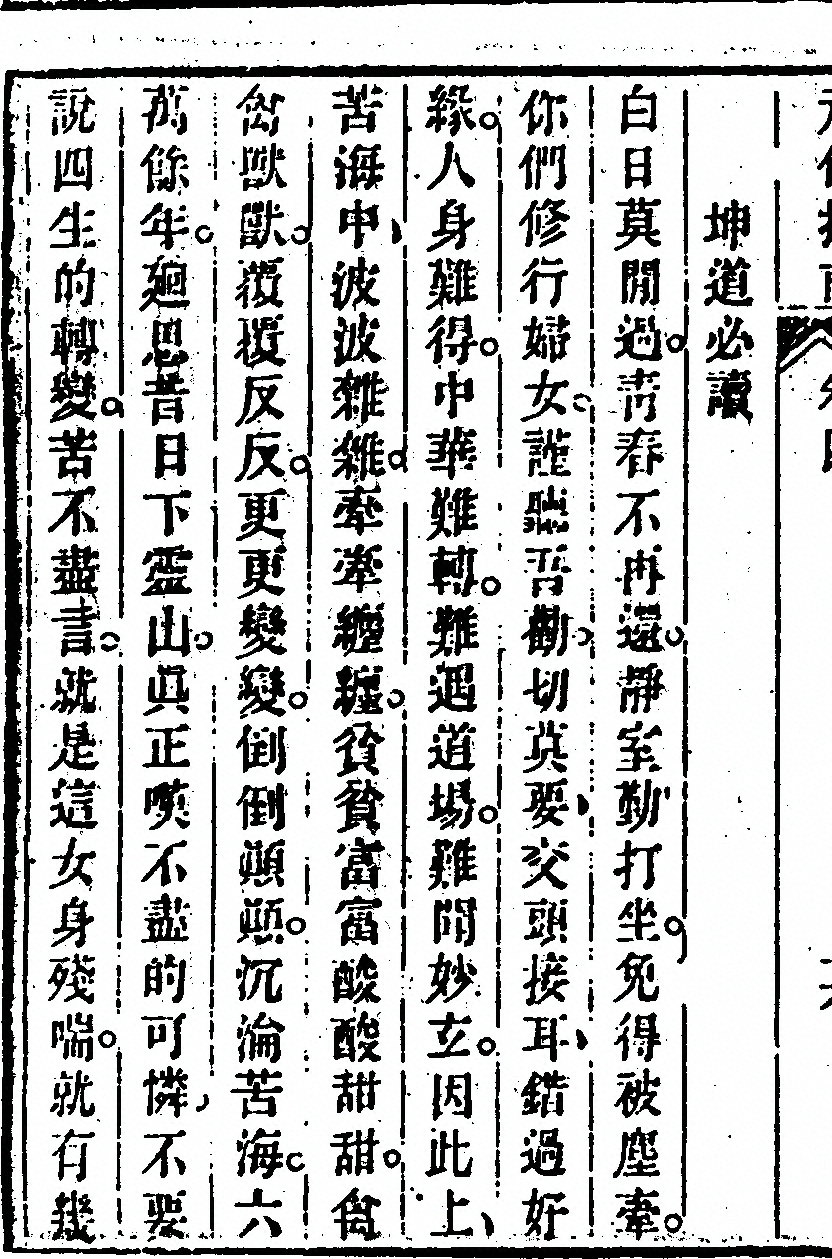 坤道必讀
白日莫閒過。靑春不再還。靜室勤打坐。免得被塵牽。
你們修行婦女。謹聽吾勸。切莫要、交頭接耳、錯過好
緣。人身難得。中華難轉。難遇道場。難聞妙玄。因此上、
苦海中、波波雜雜。牽牽纏纏。貧貧富富酸酸甜甜。禽
禽獸獸。覆覆反反。更更變變。倒倒顚顚。沉淪苦海。六
萬餘年。廻思昔日下靈山。眞正嘆不盡的可憐、不要
說四生的轉變。苦不盡言。就是這女身殘喘。就有幾